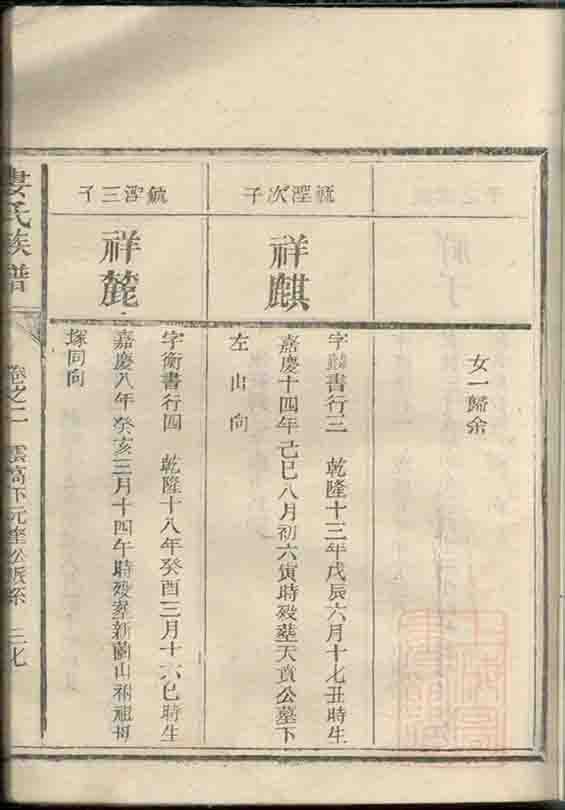 女一歸余
毓瀅次子
祥麒
書行三　乾隆十三年戊辰六月十七丑時生
嘉慶十四年己巳八月初六寅時歿塟天賁公墓下
左山向
毓瀅三子
祥麓
字衡書行四　乾隆十八年癸酉三月十六巳時生
嘉慶八年癸亥三月十四午時歿塟新蘭山祔祖母
塚同向
婁氏族譜
卷之二　雲高下元奎公派系　三七